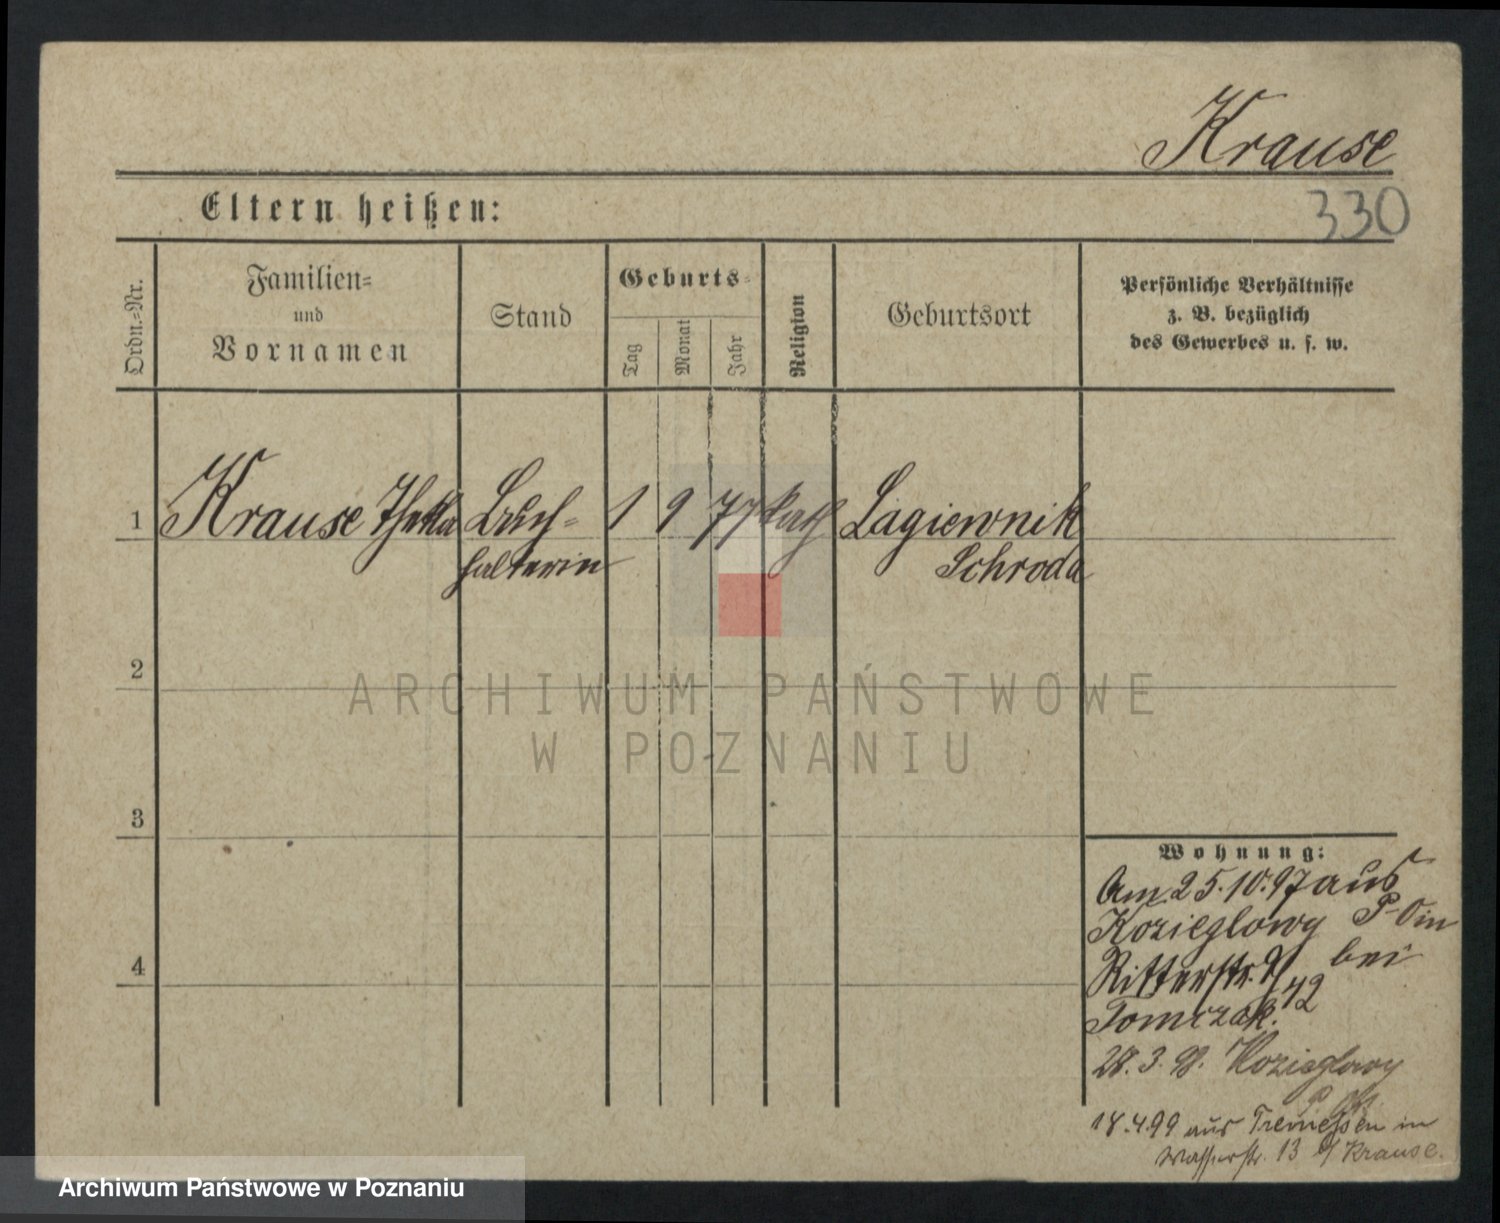 Krause
330
Eltern heißen:
Ordn.-Nr.
Familien-
und
Vornamen
Stand
Geburts-
Tag
Monat
Jahr
Religion
Geburtsort
Persönliche Verhältnisse
z. B. bezüglich
des Gewerbes u. s. w.
1 Krause Thekla Buch- 1 9 77 kath Lagiewnik
halterin Schroda
2
3
4
Wohnung:
Am 25.10.97 aus
Kozieglowy P-O in
Ritterstr. bei
Tomczak.
28.3.98. Kozieglowy
18.4.99 aus Tremessen in
Wasserstr. 13 b/ Krause.
ARCHIWUM PAŃSTWOWE
W POZNANIU
Archiwum Państwowe w Poznaniu